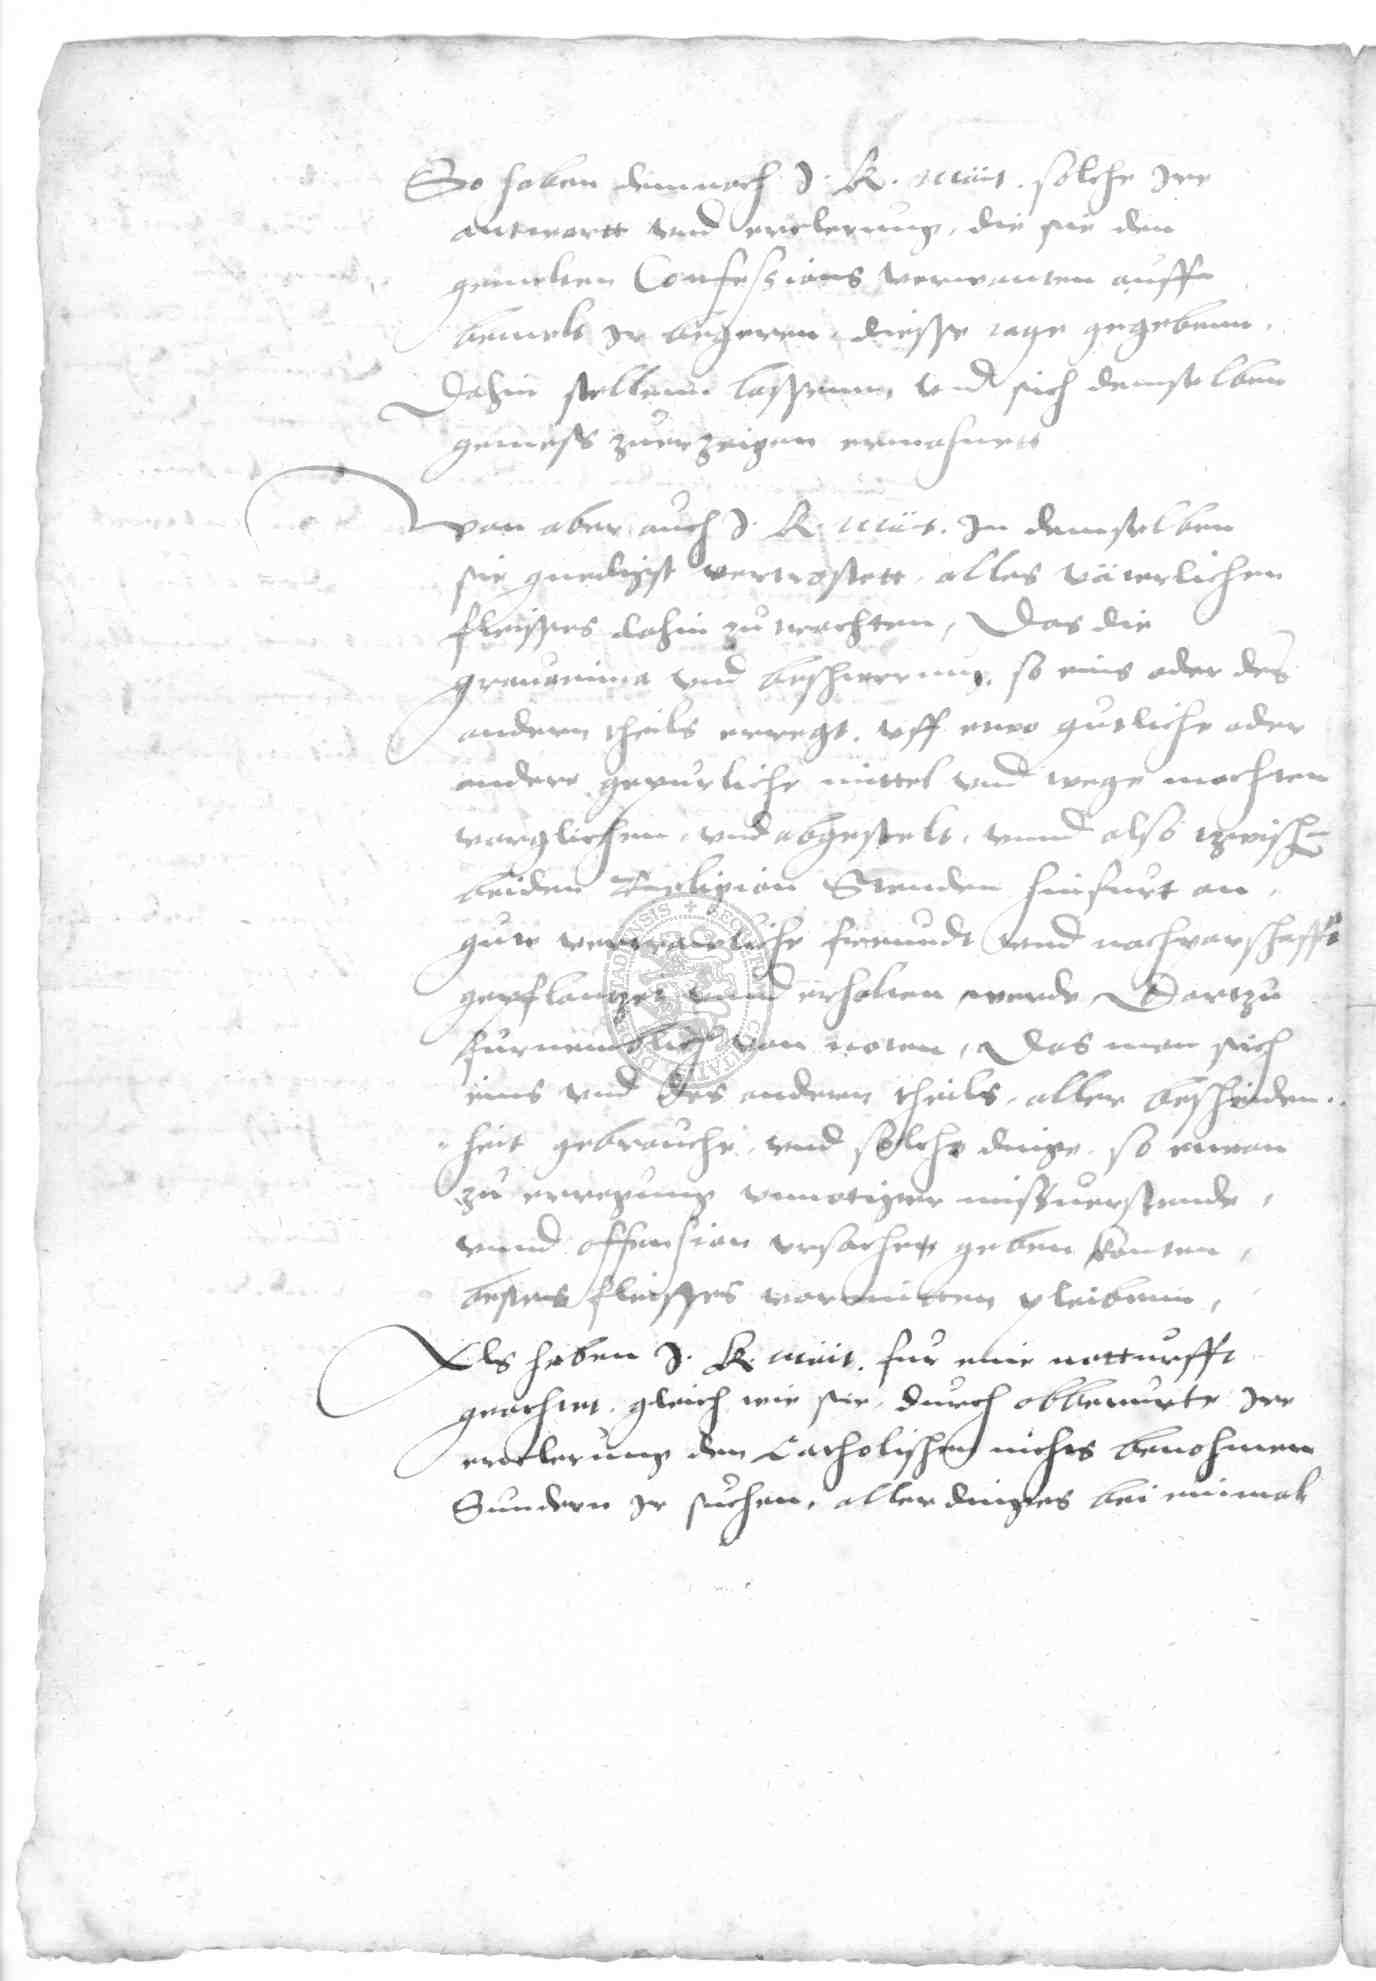 So haben demnach J. K. Maÿt. solche Ire
antwortt vnd erclerung, die sie den
gemelten Confessions verwanten auff
bemelt Ir begeren, diesse tage gegebenn,
Dahin stellenn lassenn, vnd sich demselben
gemess zuerzeigen ermahnet
Wan aber auch J. K. Maÿt. In demselben
sie gnedigst vertrostett, alles väterlichen
fleisses dahin zu trachten, Das die
grauamina vnd beschwerung, so eins oder des
andern theils erregt, vff etwo gutliche oder
andere gepurliche mittel vnd wege mochten
verglichen, vnd abgestelt, vnnd also zwischen
beiden Religion Stenden hinfurt an,
gute vertrawliche freundt vnd nachparschafft
gepflantzet vnnd erhalten werde, Dartzu
furnemblich von noten, Das man sich
eins vnd des andern theils, aller bescheiden-
heit gebrauche, vnd solche dinge, so etwan
zu erregung vnnotiger missuerstende,
vnnd offension vrsachen geben konten,
bestens fleisses vormitten pleibenn,
Als haben J. K. Maÿt. fur eine notturfft
geachtet, gleich wie sie, durch obberurte Ire
erclerung den Catholischen nichts benohmen
Sundern Ir suchen, aller dinges bei einmal